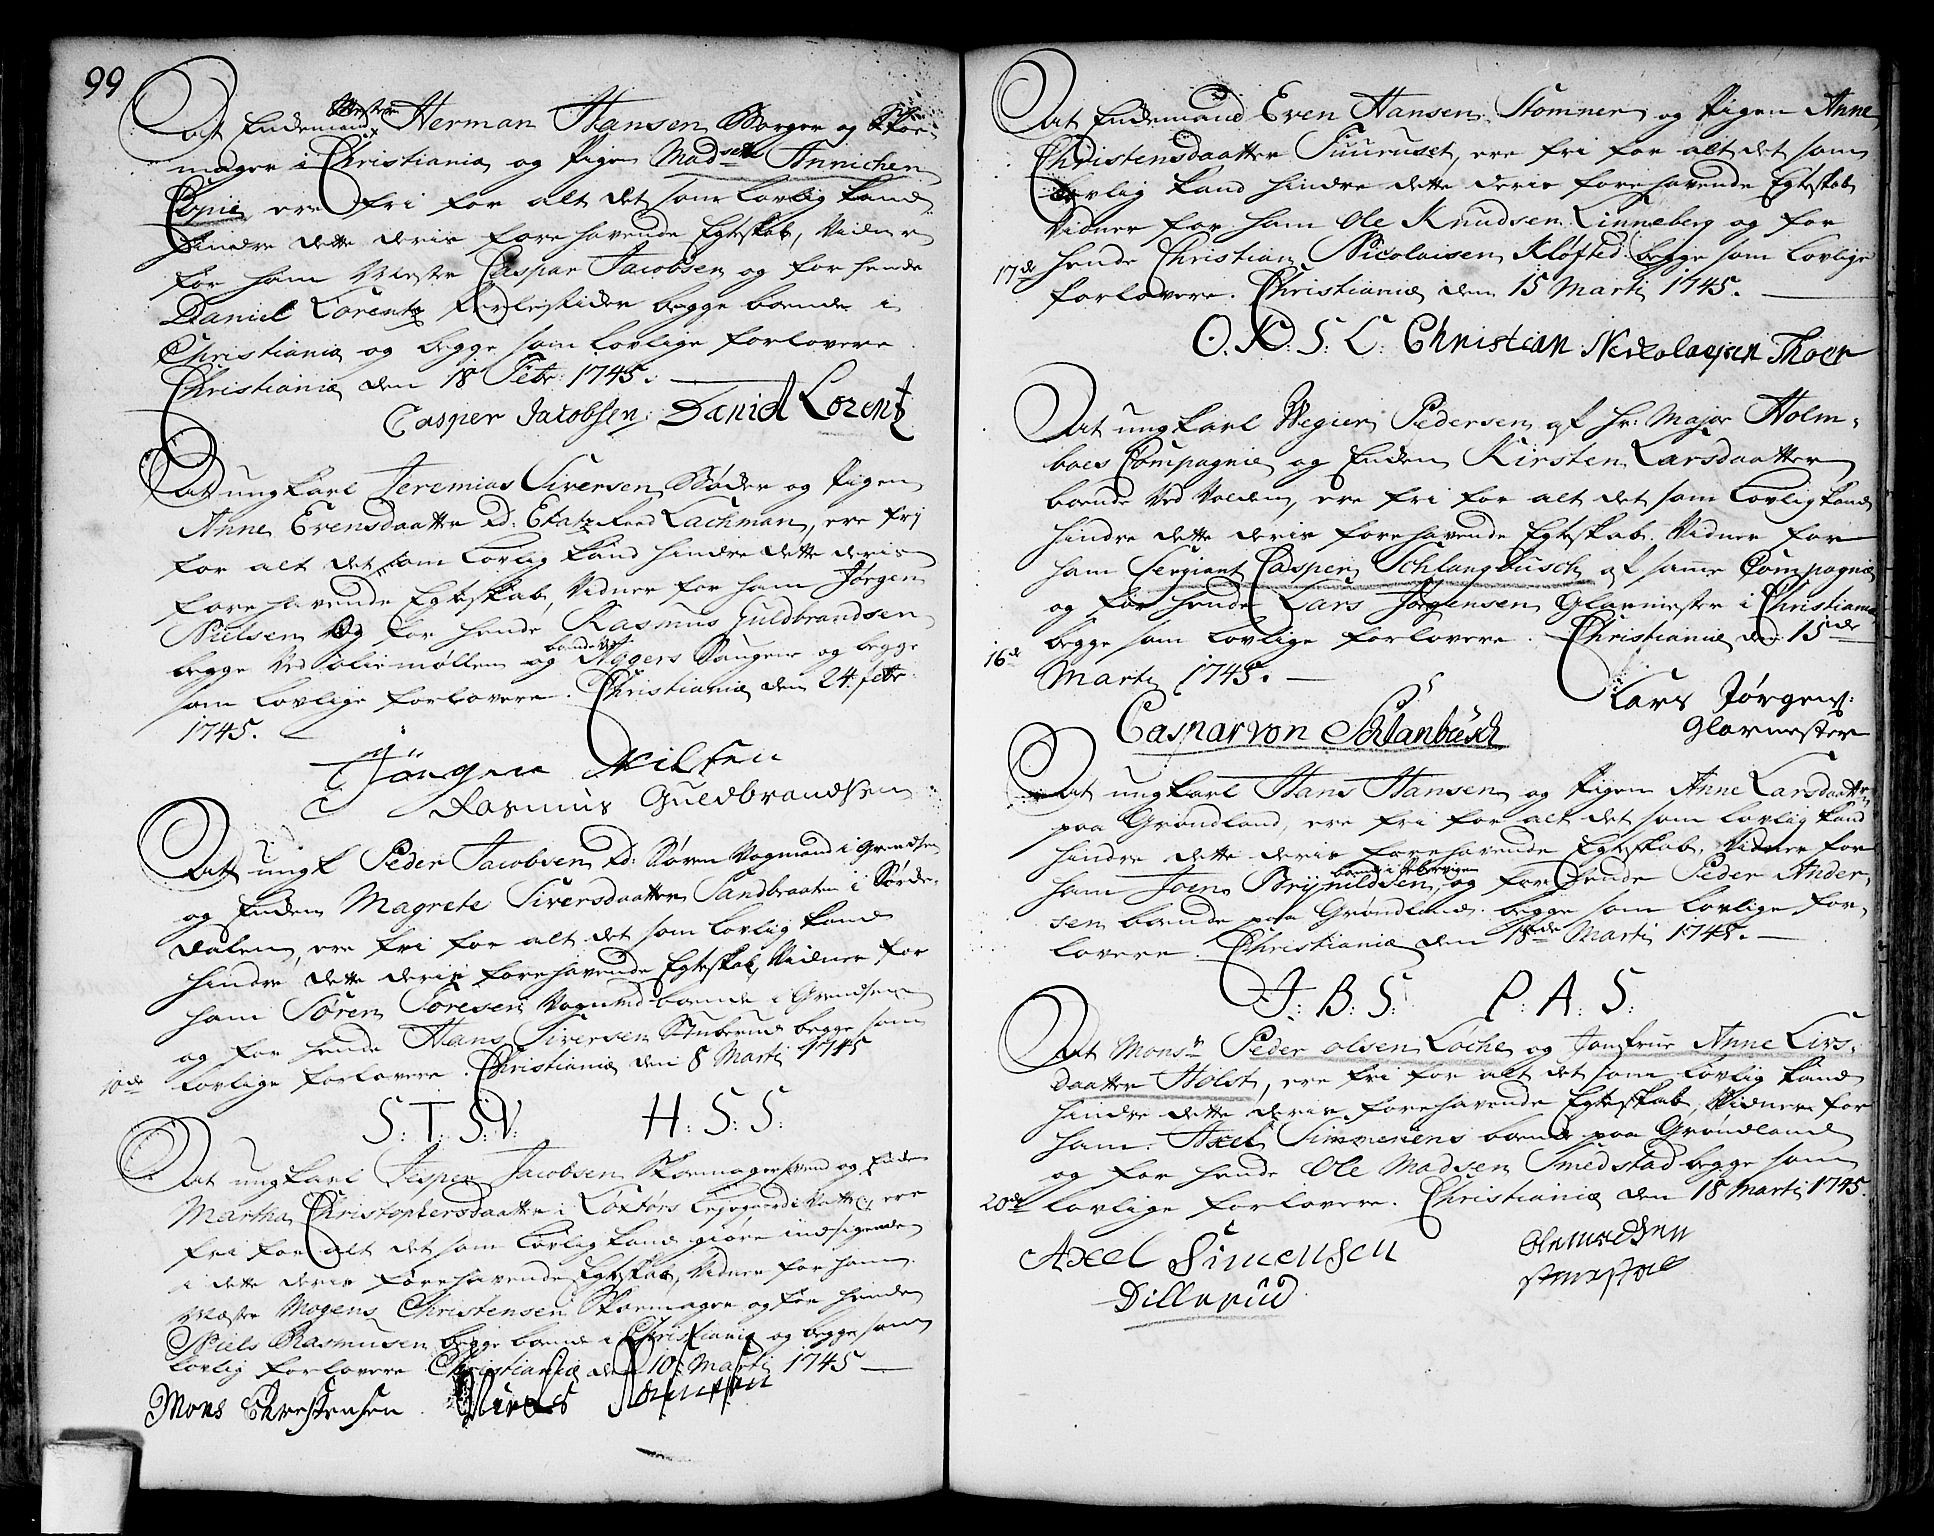 99
Mester
At Enckemand Herman Hansen Borger og Skoe-
mager i Christiania og Pigen Madse Annichen
Copie, ere fri for alt det som Lovlig kand
hindre dette deris forehavende Egteskab, Vidner
for ham Mester Caspar Jacobsen og for hende
Daniel Lorentz begge boende i
Christiania og begge som lovlige forlovere
Christiania den 18 Febr: 1745.
Casper Jacobsen. Daniel Lorentz
At ungkarl Jeremias Siversen Bøder og Pigen
Anne Evensdaatter Lachman, ere fri
for alt det som Lovlig kand hindre dette deris
forehavende Egteskab, Vidner for ham Jørgen
Nielsen og for hende Rasmus Guldbrandsen
boende ved
begge ved oliemøllen og Aggers Saugene og begge
som lovlige forlovere. Christiania den 24. febr:
1745.
Jörgen Nilsen
Rasmus Guldbrandsen
At ungk. Peder Jacobsen Søren Vogmand i Grendsen
og Encken Magrete Siversdaatter Sandbraaten i Sørde-
dalen, ere fri for alt det som lovlig kand
hindre dette deris forehavende Egteskab, Vidner for
ham Søren Soresen Vogmd boende i Grendsen
og for hende Hans Siversen Stuberud begge som
10de lovlige forlovere. Christiania den 8 Marti 1745
S: T: S: V: H: S: S:
At ungkarl Jesper Jacobsen Skoemagersvend og Encken
Martha Christophersdaatter i ere
fri for alt det som Lovlig kand giøre indsigende
i dette deris forehavende Egteskab, Vidner for ham
Mester Mogens Christensen Skoemager og for hende
Niels Rasmusen begge boende i Christiania og begge som
lovlig forlovere Christiania den 10 Marti 1745
Mons Chrestensen. Nieels
At Enckemand Even Hansen Stomner og Pigen Anne
Christensdaatter Fuuruset, ere fri for alt det som
Lovlig kand hindre dette deris forehavende Egteskab
Vidner for ham Ole Knudsen Linneberg og for
17de hende Christian Nicolaisen Kløfted begge som lovlige
forlovere. Christiania den 15 Marti 1745.
O. K. S: L: Christian Nickolaysen Thoer
At ungkarl Wegier Pedersen af Hr: Major Holm-
boes Compagnie og Encken Kirsten Larsdaatter
boende ved Volden, ere fri for alt det som Lovlig kand
hindre dette deris forehavende Egteskab. Vidner for
ham Sergiant Casper Schlangbusch af samme Compagnie
og for hende Lars Jørgensen Glarmester i Christiania
begge som lovlige forlovere. Christiania den 15de
16de Marti 1745.
Lars Jørgens:
Glarmester
Caspar von Schlanbusch
At ungkarl Hans Hansen og Pigen Anne Larsdaatter
paa Grønland, ere fri for alt det som lovlig kand
hindre dette deris forehavende Egteskab, Vidner for
boende i
ham Joen Brynildsen, og for hende Peder Ander-
sen boende paa Grønland begge som lovlige for-
lovere. Christiania den 18de Marti 1745.
J: B: S: P: A: S:
At Monsr Peder olsen Løche og Jomfrue Anne Lirs-
daatter Holst, ere fri for alt det som lovlig kand
hindre dette deris forehavende Egteskab, Vidner for
ham. Axel Simmenens boende paa Grønland
og for hende Ole Madsen Smedstad begge som
20de lovlige forlovere. Christiania den 18 Marti 1745.
Axel Simensen
Dillerud